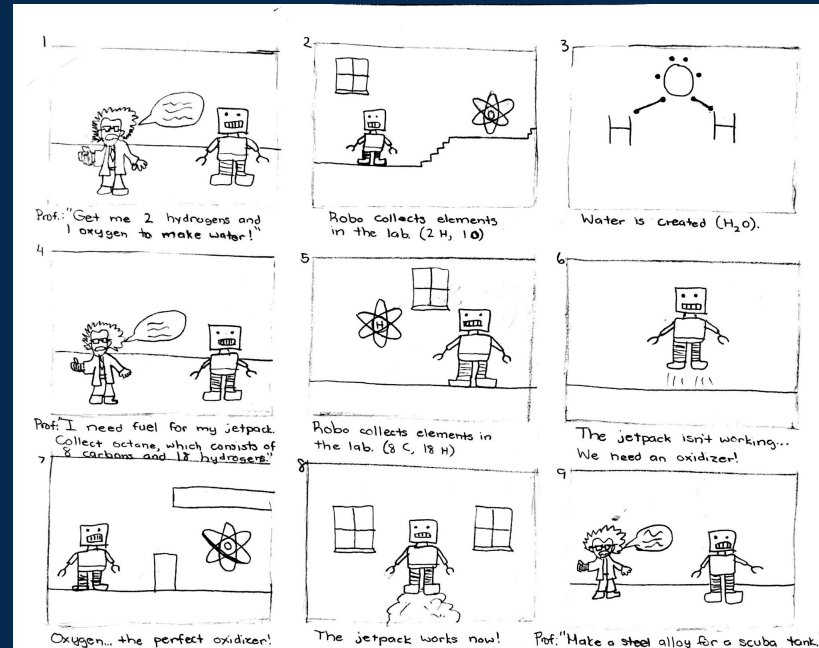 1
Prof.: "Get me 2 hydrogens and
1 oxygen to make water!"
2
O
Robo collects elements
in the lab. (2 H, 1 O)
3
H
H
Water is created (H₂O).
4
Prof: "I need fuel for my jetpack.
Collect octane, which consists of
8 carbons and 18 hydrogens."
5
H
Robo collects elements in
the lab. (8 C, 18 H)
6
The jetpack isn't working...
We need an oxidizer!
7
O
Oxygen... the perfect oxidizer!
8
The jetpack works now!
9
Prof: "Make a steel alloy for a scuba tank.